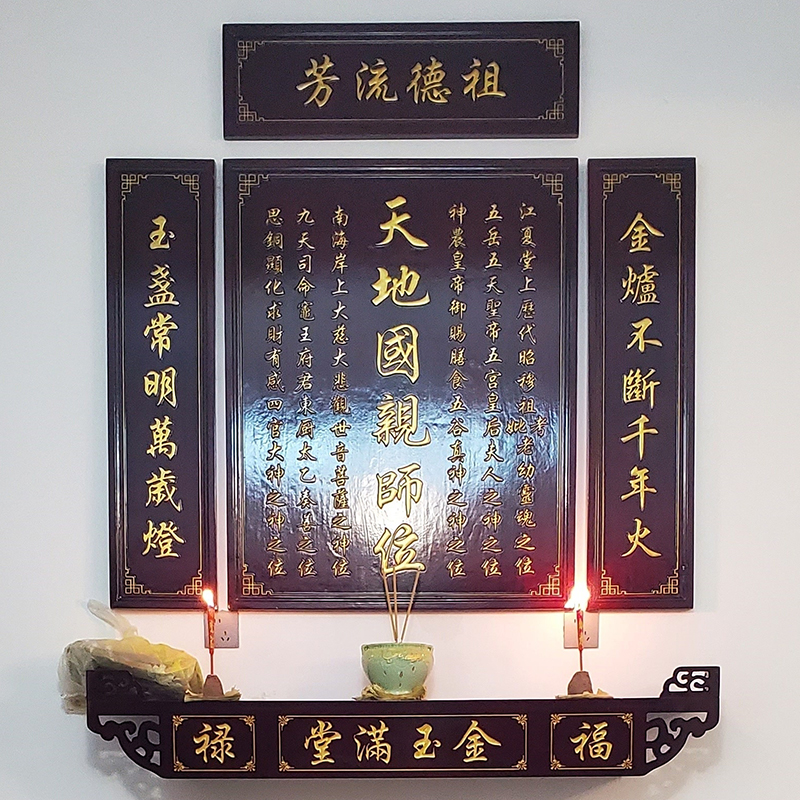 祖德流芳
金爐不斷千年火
江夏堂上歷代昭穆祖考妣老幼靈魂之位
五岳五天聖帝五宫皇后夫人之神之位
神農皇帝御賜膳食五谷真神之神之位
天地國親師位
南海岸上大慈大悲觀世音菩薩之神位
九天司命竈王府君東厨太乙奏善之位
思銅顯化求財有感四官大神之神之位
玉盞常明萬歲燈
福
金玉滿堂
禄